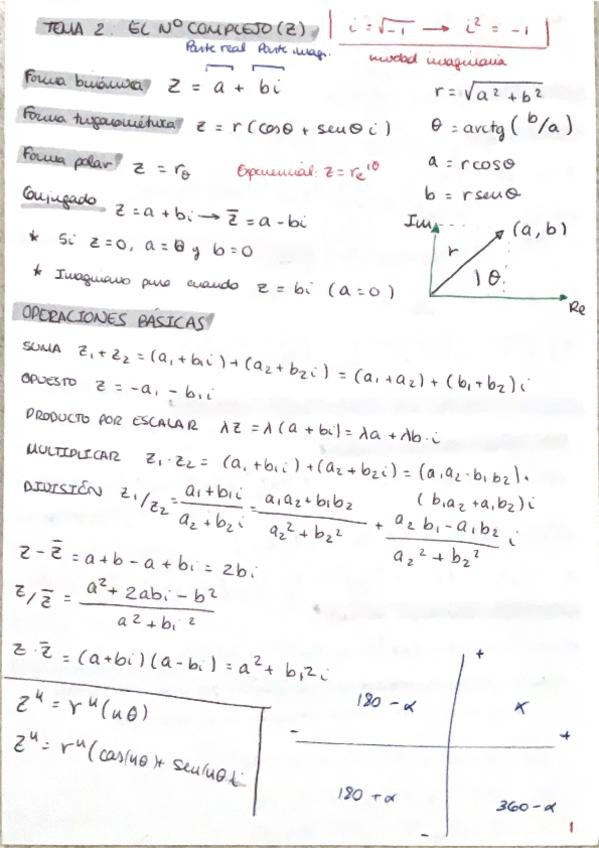 TEMA 2. EL Nº COMPLEJO (Z) i = √-1 → i² = -1
Parte real Parte imag. unidad imaginaria
Forma binómica z = a + bi r = √a² + b²
Forma trigonométrica z = r (cosθ + senθ i) θ = arctg (b/a)
Forma polar z = rθ Exponencial: z = re^iθ a = r cosθ
b = r senθ
Conjugado z = a + bi → z̄ = a - bi
* Si z=0, a=0 y b=0
* Imaginario puro cuando z = bi (a=0)
Im (a, b)
r
θ
Re
OPERACIONES BÁSICAS
SUMA z₁ + z₂ = (a₁ + b₁i) + (a₂ + b₂i) = (a₁ + a₂) + (b₁ + b₂)i
OPUESTO z = -a₁ - b₁i
PRODUCTO POR ESCALAR λz = λ(a + bi) = λa + λb·i
MULTIPLICAR z₁·z₂ = (a₁ + b₁i) + (a₂ + b₂i) = (a₁a₂ - b₁b₂)·
(b₁a₂ + a₁b₂)i
DIVISIÓN z₁/z₂ = a₁ + b₁i / a₂ + b₂i = a₁a₂ + b₁b₂ / a₂² + b₂² + a₂b₁ - a₁b₂ / a₂² + b₂² i
z - z̄ = a + b - a + bi = 2bi
z/z̄ = a² + 2abi - b² / a² + bi²
z · z̄ = (a+bi)(a-bi) = a² + b₁2i
zⁿ = rⁿ(nθ)
zⁿ = rⁿ(cos(nθ) + sen(nθ i
+
180 - α α
- +
180 + α 360 - α
-
1